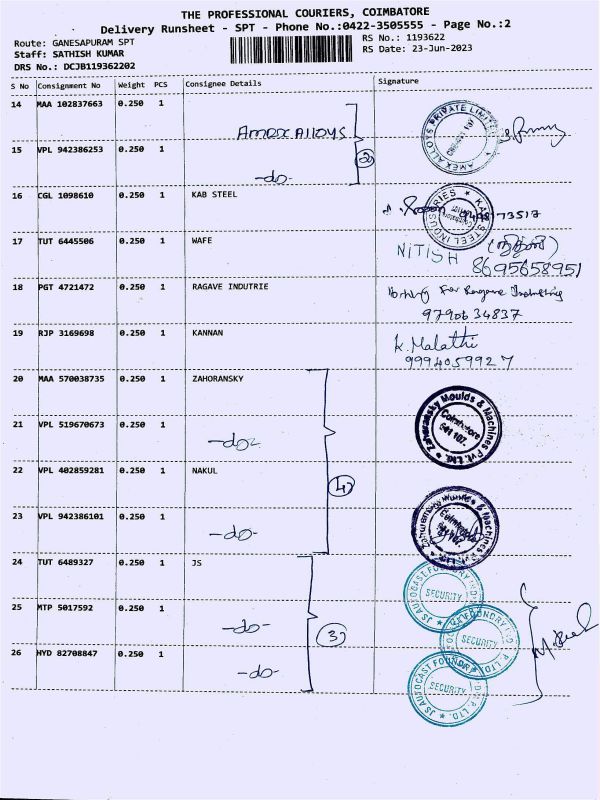 THE PROFESSIONAL COURIERS, COIMBATORE
Delivery Runsheet - SPT - Phone No.:0422-3505555 - Page No.:2
Route: GANESAPURAM SPT
RS No.: 1193622
Staff: SATHISH KUMAR
RS Date: 23-Jun-2023
DRS No.: DCJB119362202
S No Consignment No Weight PCS Consignee Details Signature
14 MAA 102837663 0.250 1
Amex Alloys
15 VPL 942386253 0.250 1
-do-
2
AMEX ALLOYS PRIVATE LIMITED
16 CGL 1098610 0.250 1 KAB STEEL
KAB STEEL INDUSTRIES
17 TUT 6445506 0.250 1 WAFE
NITISH (நிதிஷ்)
8695658951
18 PGT 4721472 0.250 1 RAGAVE INDUTRIE
9790634837
19 RJP 3169698 0.250 1 KANNAN
K. Malathi
9994059927
20 MAA 570038735 0.250 1 ZAHORANSKY
Zahoransky Moulds & Machines Pvt. Ltd.
Coimbatore
641 107.
21 VPL 519670673 0.250 1
-do-
22 VPL 402859281 0.250 1 NAKUL
4
Zahoransky Moulds & Machines Pvt. Ltd.
23 VPL 942386101 0.250 1
-do-
24 TUT 6489327 0.250 1 JS
JS AUTOCAST FOUNDRY
SECURITY
25 MTP 5017592 0.250 1
-do-
3
SECURITY
26 HYD 82708847 0.250 1
-do-
JS AUTOCAST FOUNDRY
SECURITY